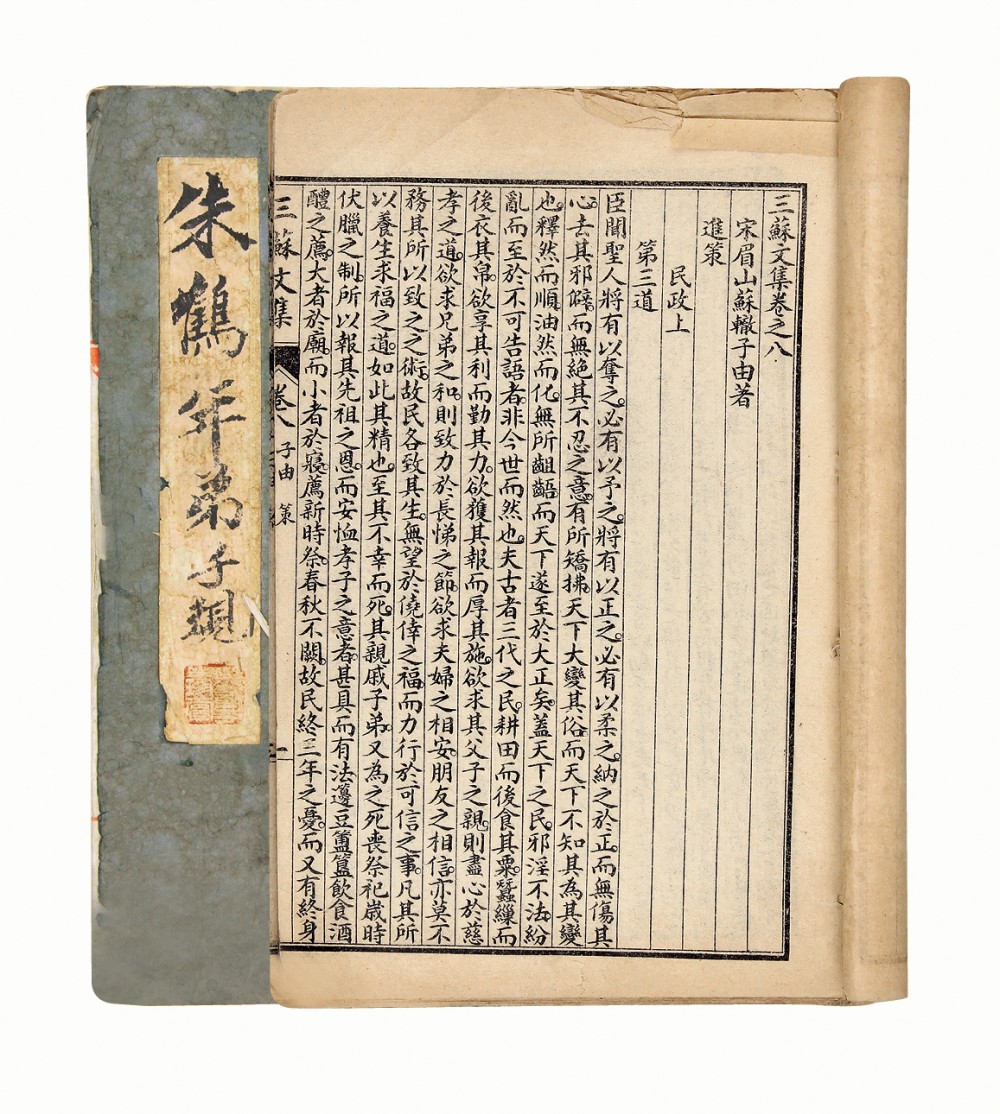 三蘇文集卷之八
宋眉山蘇轍子由著
進策
民政上
第三道
臣聞聖人將有以奪之。必有以予之。將有以正之。必有以柔之。納之於正。而無傷其
心。去其邪僻。而無絕其不忍之意。有所矯拂。天下大變其俗。而天下不知其為其變
也。釋然而順。油然而化。無所齟齬。而天下遂至於大正矣。蓋天下之民。邪淫不法。紛
亂而至於不可告語者。非今世而然也。夫古者三代之民。耕田而後食其粟。蠶繅而
後衣其帛。欲享其利。而勤其力。欲獲其報。而厚其施。欲求其父子之親。則盡心於慈
孝之道。欲求兄弟之和。則致力於長悌之節。欲求夫婦之相安。朋友之相信。亦莫不
務其所以致之之術。故民各致其生。無望於僥倖之福。而力行於可信之事。凡其所
以養生求福之道。如此其精也。至其不幸而死。其親戚子弟。又為之死喪祭祀歲時
伏臘之制。所以報其先祖之恩。而安恤孝子之意者。甚具而有法。籩豆簠簋飲食酒
醴之薦。大者於廟。而小者於寢。薦新時祭。春秋不闕。故民終三年之憂。而又有終身
三蘇文集
卷八
子由 策
一
朱鶴年弟子題